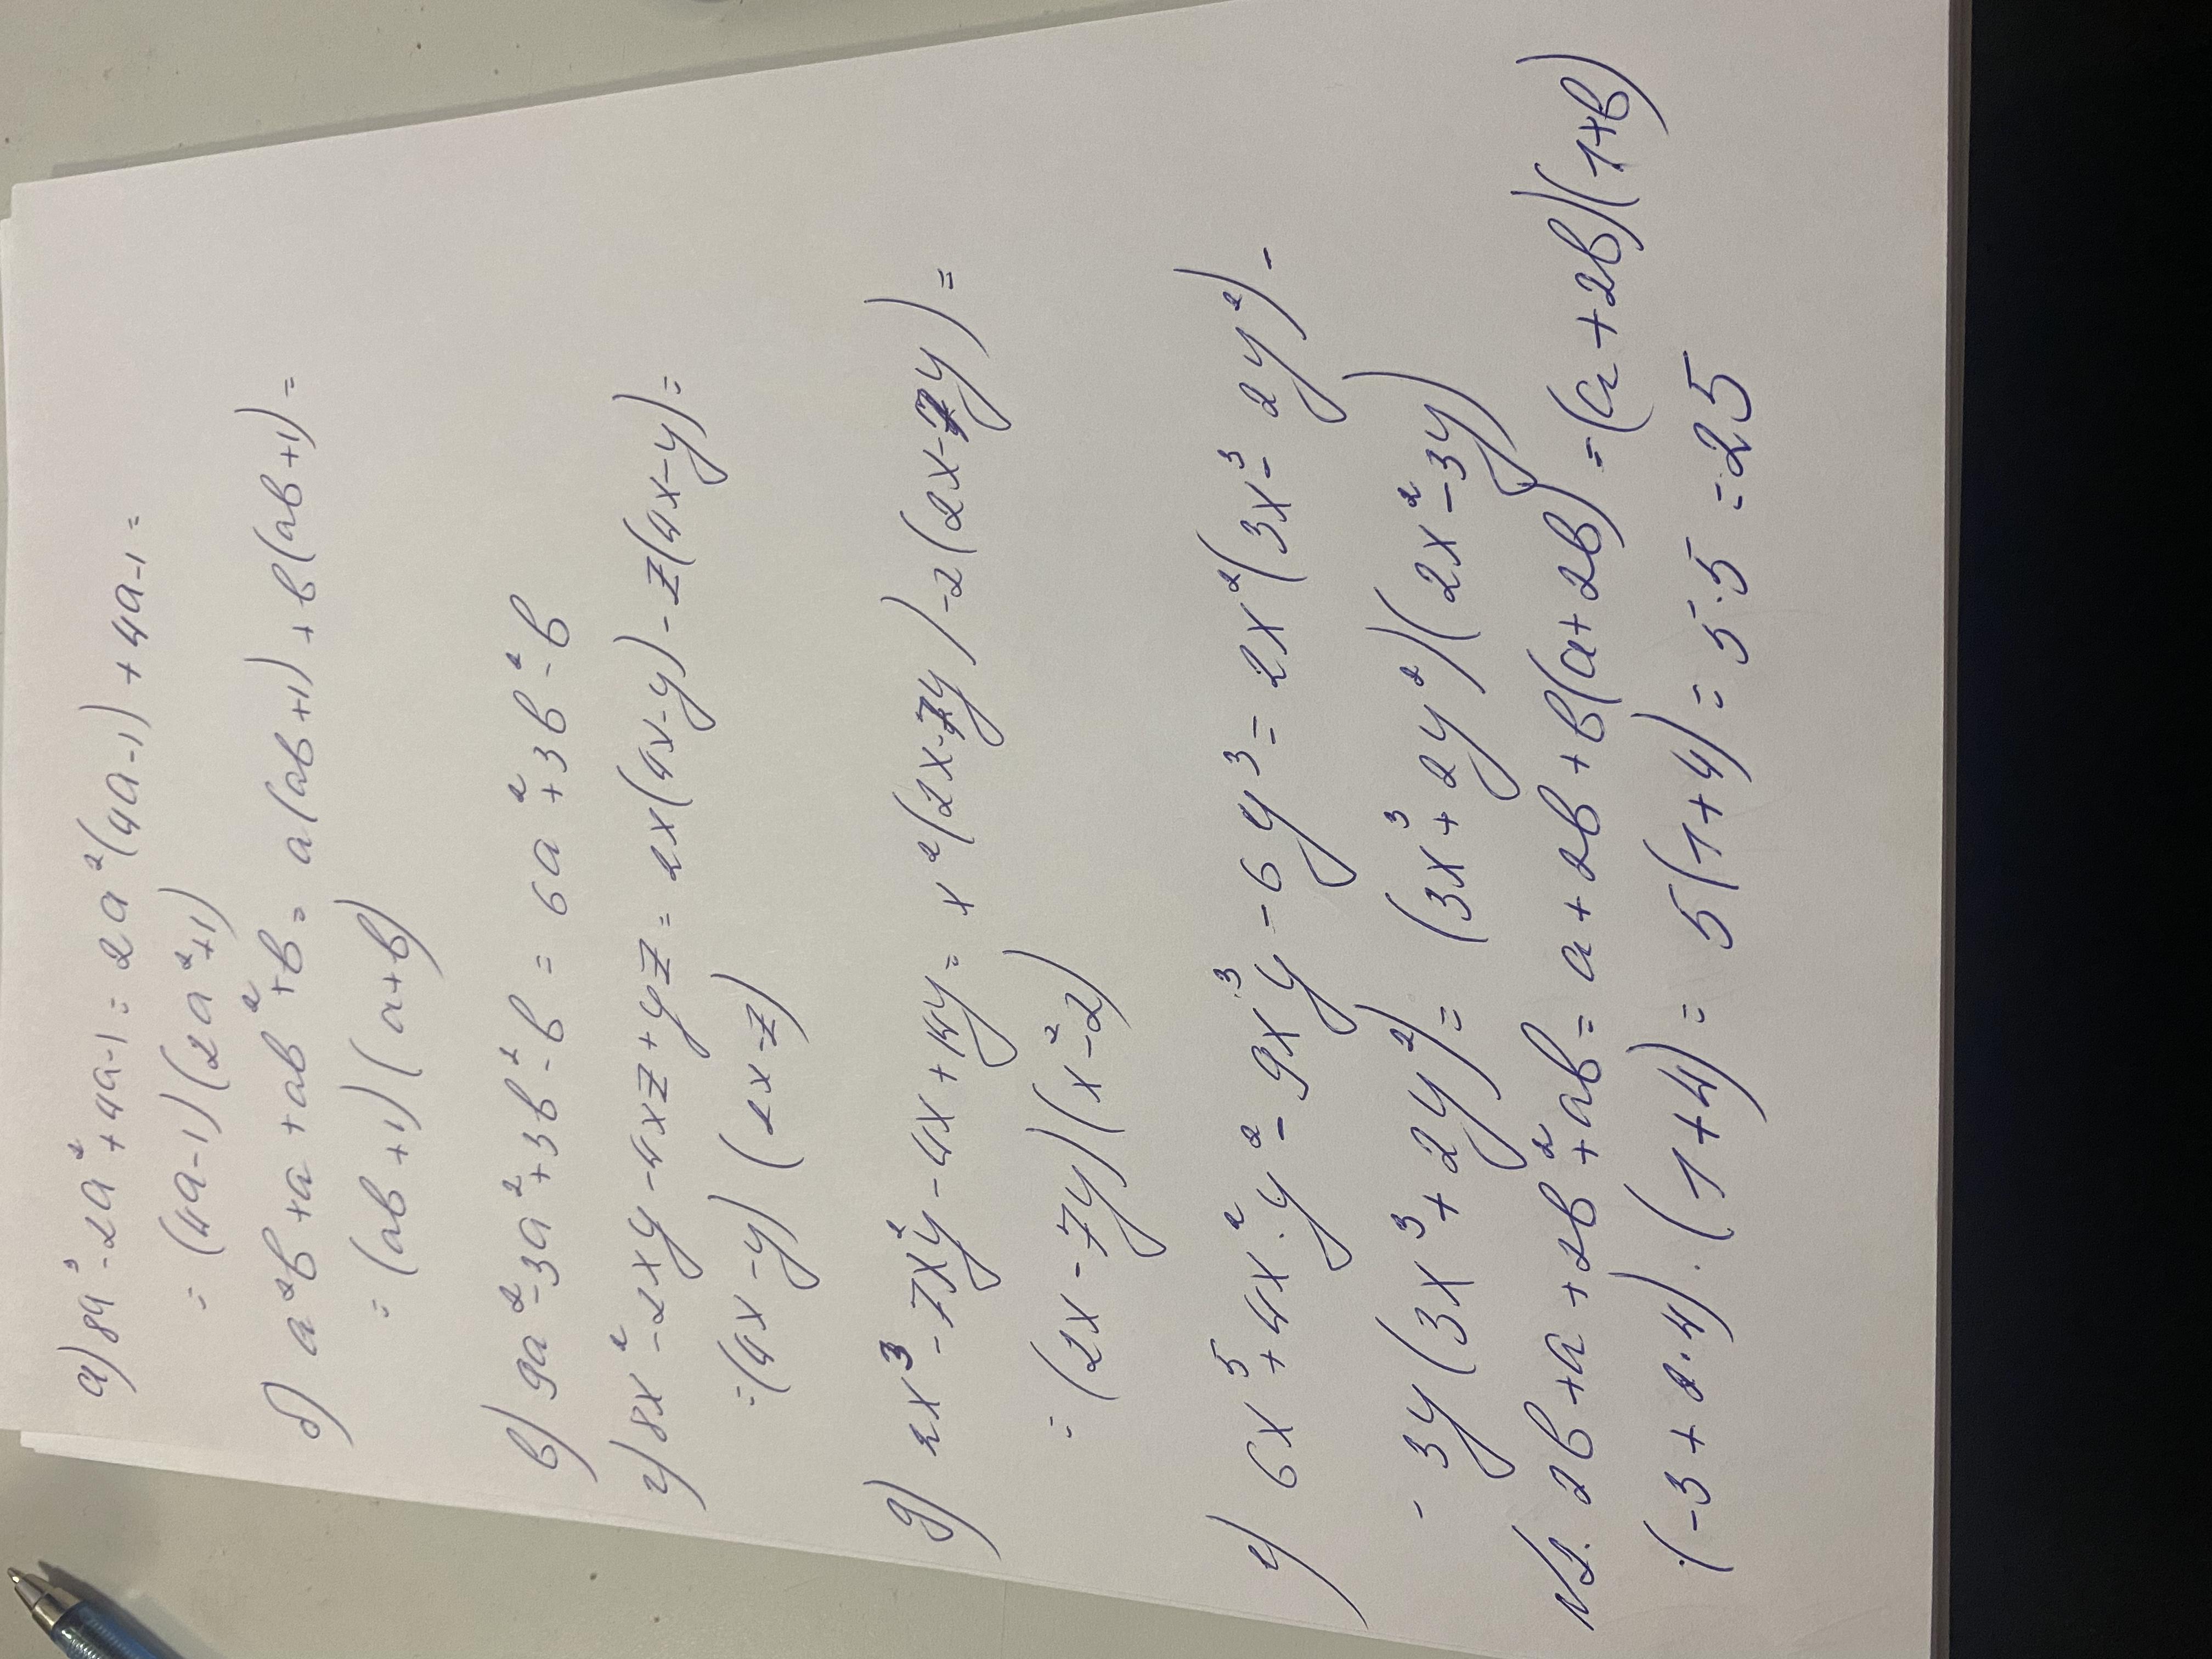 а) 8a³-2a²+4a-1= 2a²(4a-1)+4a-1=
= (4a-1)(2a²+1)
б) a²b+a+ab²+b= a(ab+1)+b(ab+1)=
= (ab+1)(a+b)
в) 9a²-3a²+3b²-b = 6a²+3b²-b
г) 8x²-2xy-4xz+yz= 2x(4x-y)-z(4x-y)=
=(4x-y)(2x-z)
д) 2x³-7x²y-4x+14y= x²(2x-7y)-2(2x-7y)=
= (2x-7y)(x²-2)
е) 6x⁵+4x²·y²-9x³y-6y³= 2x²(3x³- 2y²)-
- 3y(3x³+2y²)= (3x³+2y²)(2x²-3y)
N2. 2b+a+2b²+ab= a+2b+b(a+2b)=(a+2b)(1+b)
(-3+2·4)·(1+4)= 5(1+4)=5·5=25